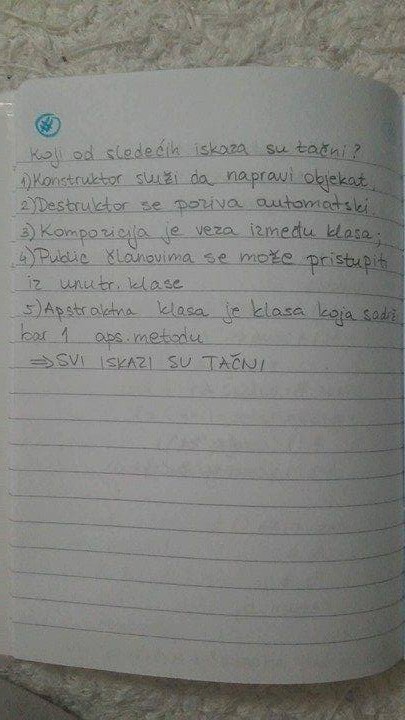 Koji od sledećih iskaza su tačni?
1) Konstruktor služi da napravi objekat.
2) Destruktor se poziva automatski
3) Kompozicija je veza između klasa;
4) Public članovima se može pristupiti
iz unutr. klase
5) Apstraktna klasa je klasa koja sadrži
bar 1 aps. metodu
⇒ SVI ISKAZI SU TAČNI